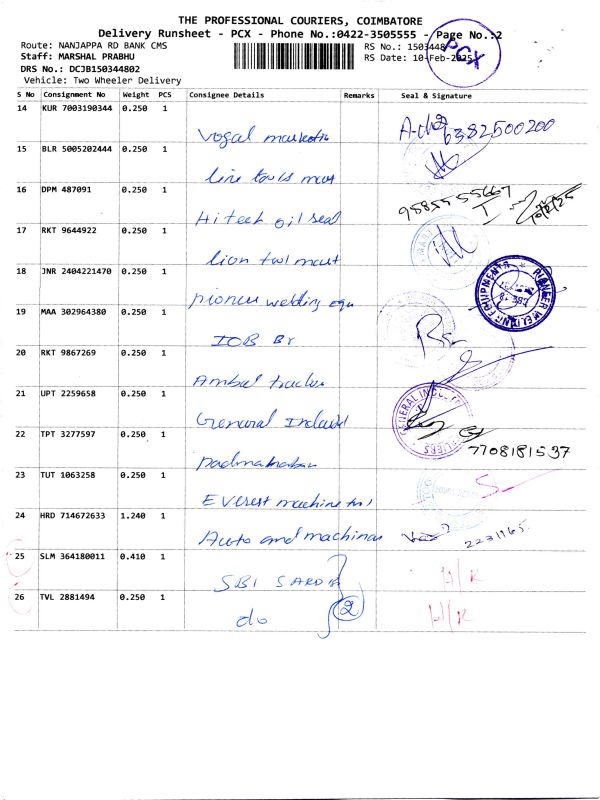 THE PROFESSIONAL COURIERS, COIMBATORE
Delivery Runsheet - PCX - Phone No.:0422-3505555 - Page No.:2
Route: NANJAPPA RD BANK CMS
RS No.: 1503448
Staff: MARSHAL PRABHU
RS Date: 10-Feb-2025
DRS No.: DCJB150344802
Vehicle: Two Wheeler Delivery
PCX
S No Consignment No Weight PCS Consignee Details Remarks Seal & Signature
14 KUR 7003190344 0.250 1
6382500200
15 BLR 5005202444 0.250 1
16 DPM 487091 0.250 1
Hitech oil seal
10/2/25
17 RKT 9644922 0.250 1
lion tool mart
18 JNR 2404221470 0.250 1
pioneer welding equ
PIONEER WELDING EQUIPMENTS
19 MAA 302964380 0.250 1
IOB Br
20 RKT 9867269 0.250 1
Ambal
21 UPT 2259658 0.250 1
General
GENERAL
22 TPT 3277597 0.250 1
7708181537
23 TUT 1063258 0.250 1
Everest machine tool
24 HRD 714672633 1.240 1
Auto and machines
2231165
25 SLM 364180011 0.410 1
SBI SARDB
26 TVL 2881494 0.250 1
do
2